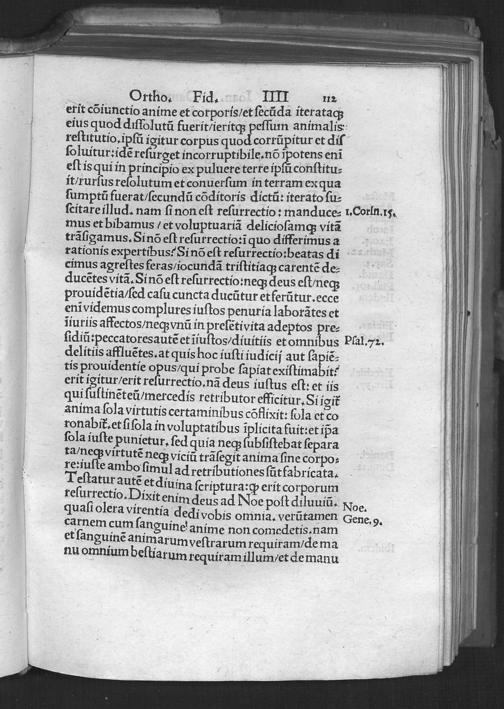 Ortho. Fid. IIII 112
erit cōiunctio anime et corporis/et secūda iterataqꝫ
eius quod dissolutū fuerit/ieritqꝫ pessum animalis
restitutio. ipsū igitur corpus quod corrūpitur et dis
soluitur: idē resurget incorruptibile. nō īpotens eni
est is qui in principio ex puluere terre ipsū constitu-
it/rursus resolutum et conuersum in terram ex qua
sumptū fuerat/secundū cōditoris dictū: iterato su-
scitare illud. nam si non est resurrectio: manduce- 1.Corin.15.
mus et bibamus / et voluptuariā deliciosamqꝫ vitā
trāsigamus. Si nō est resurrectio: ī quo differimus a
rationis expertibus? Si nō est resurrectio: beatas di
cimus agrestes feras/iocundā tristitiaqꝫ carentē de-
ducētes vitā. Si nō est resurrectio: neqꝫ deus est/neqꝫ
prouidētia/sed casu cuncta ducūtur et ferūtur. ecce
eni videmus complures iustos penuria laborātes et
īiuriis affectos/neqꝫ vnū in presēti vita adeptos pre-
sidiū: peccatores autē et īiustos/diuitiis et omnibus Psal.72.
delitiis affluētes. at quis hoc iusti iudicij aut sapiē-
tis prouidentie opus/qui probe sapiat existimabit?
erit igitur/erit resurrectio. nā deus iustus est: et iis
qui sustinēt eū/mercedis retributor efficitur. Si igit̄
anima sola virtutis certaminibus cōflixit: sola et co
ronabit̄. et si sola in voluptatibus īplicita fuit: et ip̄a
sola iuste punietur. sed quia neqꝫ subsistebat separa
ta/neqꝫ virtutē neqꝫ viciū trāsegit anima sine corpo-
re: iuste ambo simul ad retributiones sūt fabricata.
Testatur autē et diuina scriptura: ꝙ erit corporum
resurrectio. Dixit enim deus ad Noe post diluuiū.
quasi olera virentia dedi vobis omnia. verūtamen Noe.
carnem cum sanguine anime non comedetis. nam Gene.9.
et sanguinē animarum vestrarum requiram/de ma
nu omnium bestiarum requiram illum/et de manu